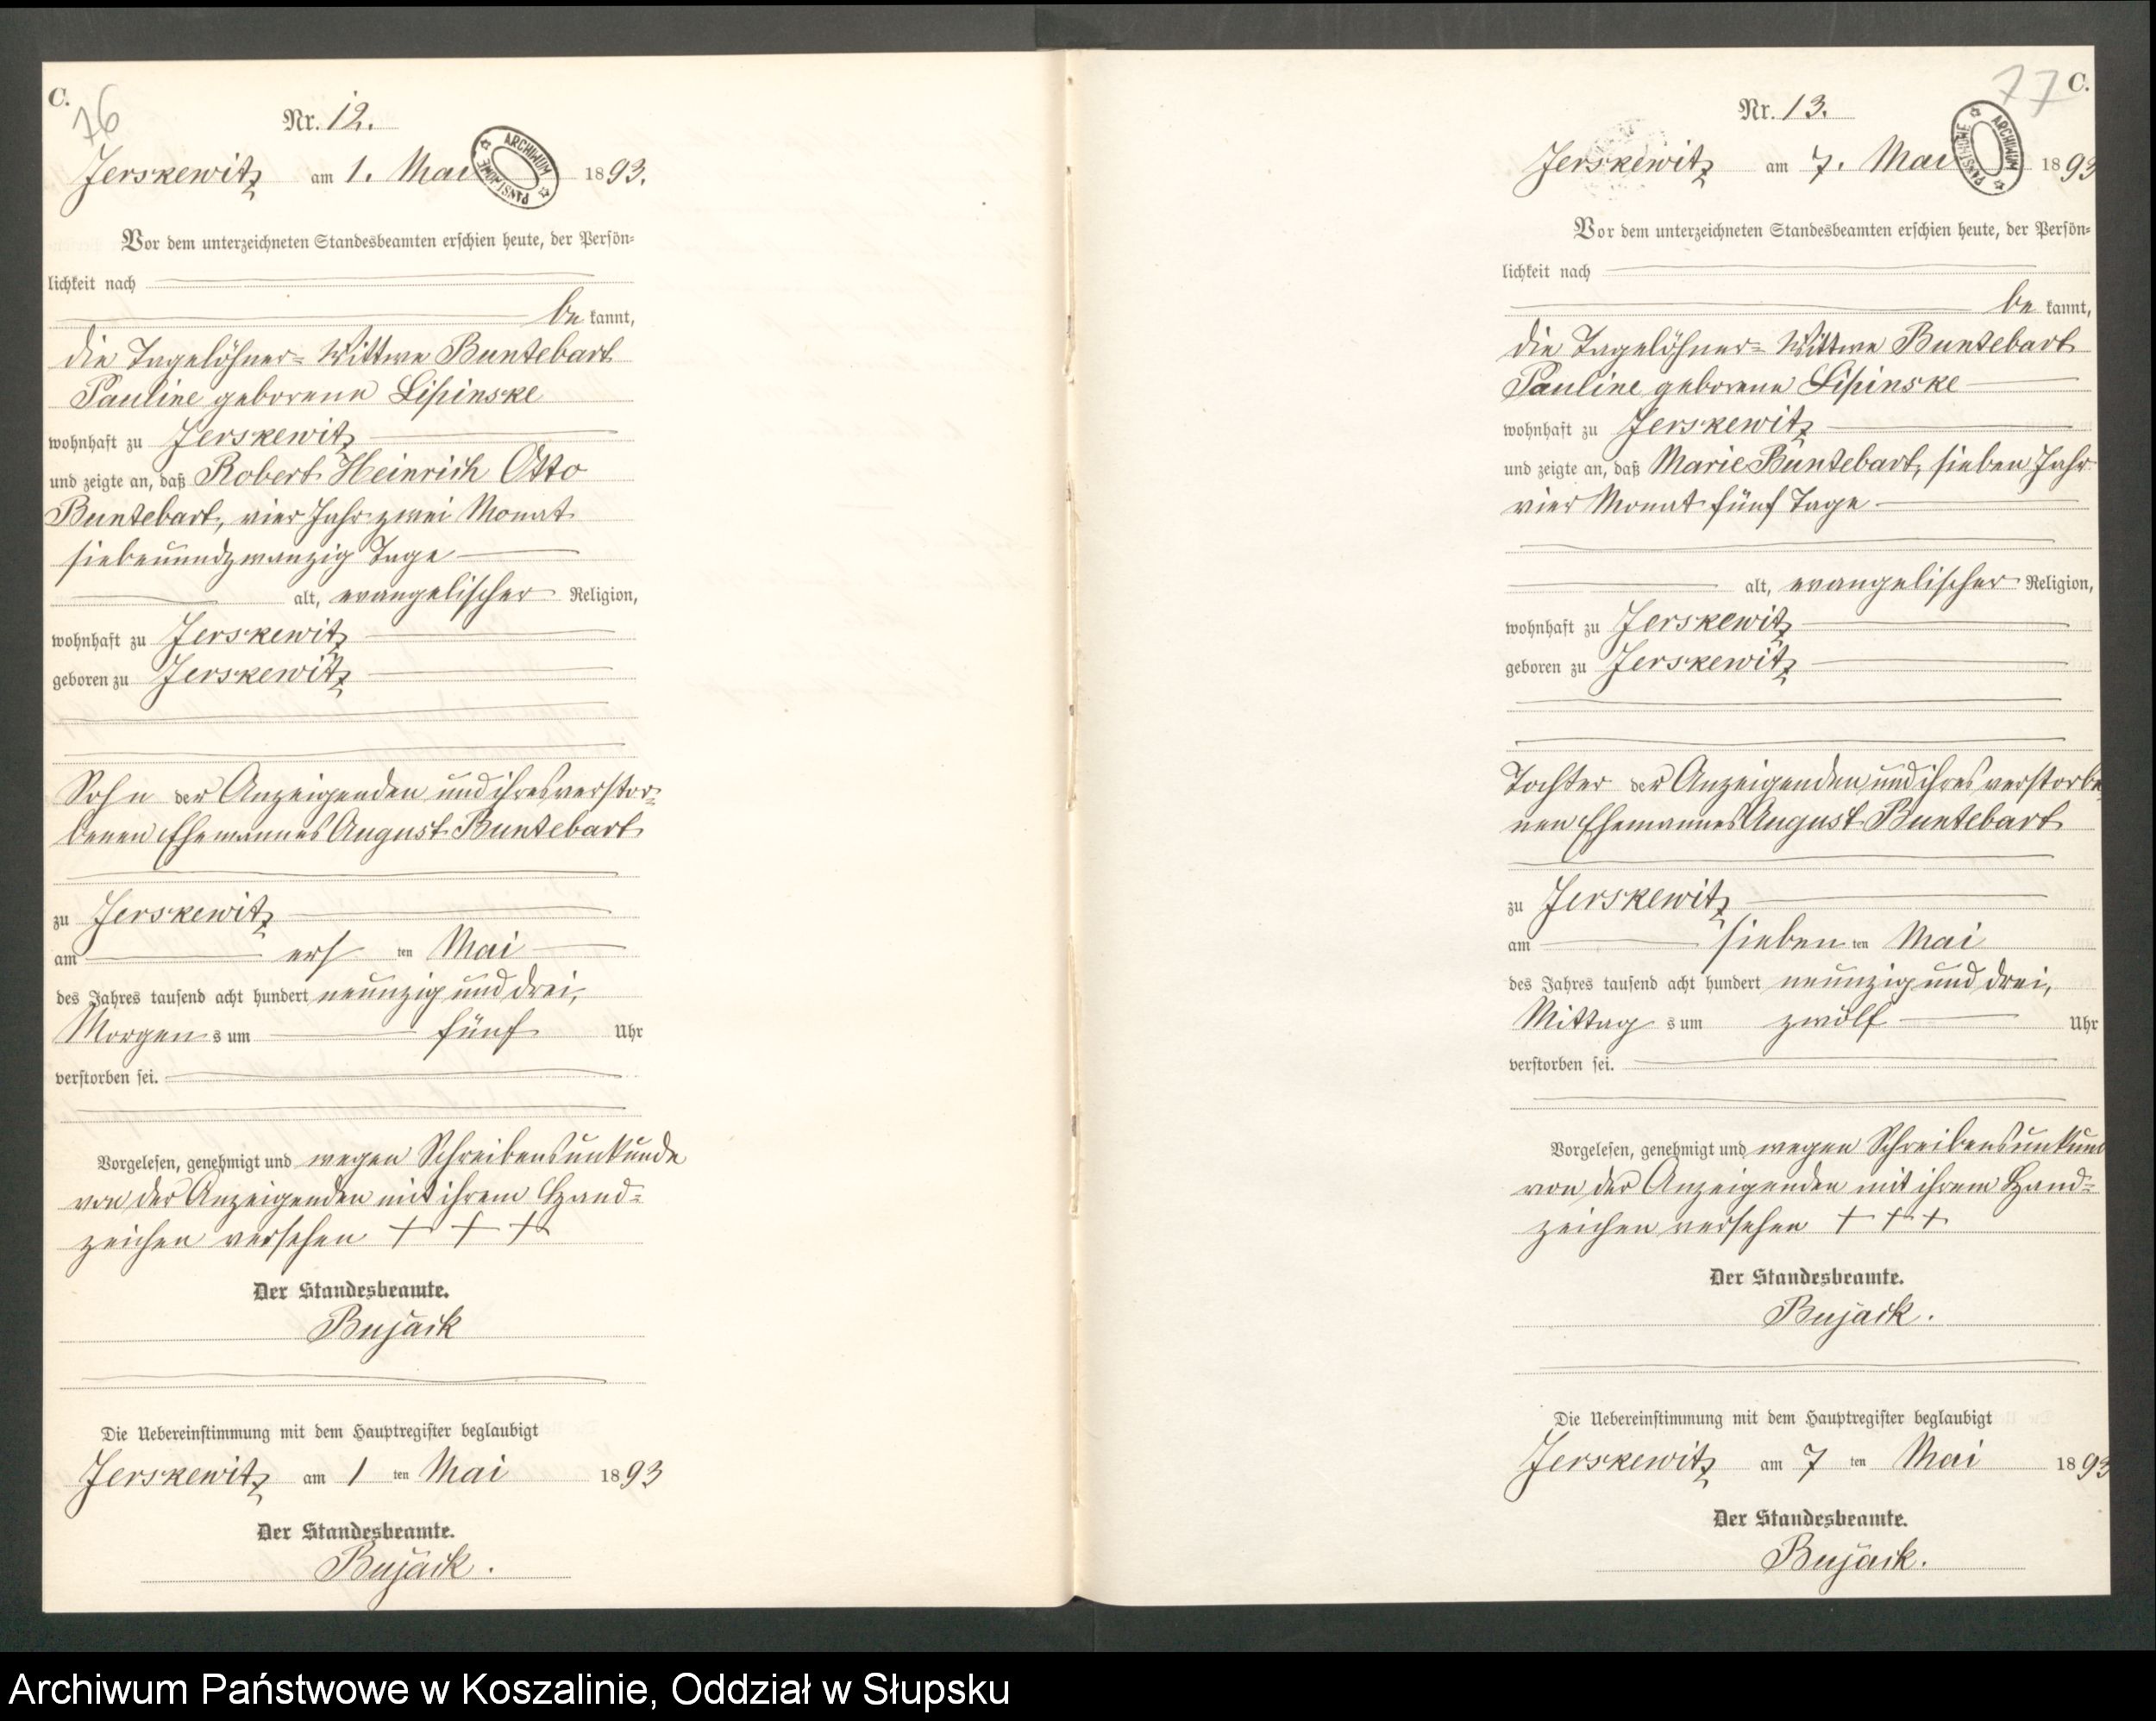 C.
76
Nr. 12.
Jerskewitz am 1. Mai 1893.
ARCHIWUM PAŃSTWOWE
Vor dem unterzeichneten Standesbeamten erschien heute, der Persön-
lichkeit nach
be kannt,
die Tagelöhner-Wittwe Buntebart
Pauline geborene Lipinske
wohnhaft zu Jerskewitz
und zeigte an, daß Robert Heinrich Otto
Buntebart, vier Jahr zwei Monat
siebenundzwanzig Tage
alt, evangelischer Religion,
wohnhaft zu Jerskewitz
geboren zu Jerskewitz
Sohn der Anzeigenden und ihres verstor-
benen Ehemannes August Buntebart
zu Jerskewitz
am ers ten Mai
des Jahres tausend acht hundert neunzig und drei,
Morgen s um fünf Uhr
verstorben sei.
Vorgelesen, genehmigt und wegen Schreibensunkunde
von der Anzeigenden mit ihrem Hand-
zeichen versehen + + +
Der Standesbeamte.
Bujack
Die Uebereinstimmung mit dem Hauptregister beglaubigt
Jerskewitz am 1 ten Mai 1893
Der Standesbeamte.
Bujack.
77 C.
Nr. 13.
Jerskewitz am 7. Mai 1893
ARCHIWUM PAŃSTWOWE
Vor dem unterzeichneten Standesbeamten erschien heute, der Persön-
lichkeit nach
be kannt,
die Tagelöhner-Wittwe Buntebart
Pauline geborene Lipinske
wohnhaft zu Jerskewitz
und zeigte an, daß Marie Buntebart, sieben Jahr
vier Monat fünf Tage
alt, evangelischer Religion,
wohnhaft zu Jerskewitz
geboren zu Jerskewitz
Tochter der Anzeigenden und ihres verstorbe
nen Ehemannes August Buntebart
zu Jerskewitz
am sieben ten Mai
des Jahres tausend acht hundert neunzig und drei,
Mittag s um zwölf Uhr
verstorben sei.
Vorgelesen, genehmigt und wegen Schreibensunkund
von der Anzeigenden mit ihrem Hand-
zeichen versehen + + +
Der Standesbeamte.
Bujack.
Die Uebereinstimmung mit dem Hauptregister beglaubigt
Jerskewitz am 7 ten Mai 1893
Der Standesbeamte.
Bujack.
Archiwum Państwowe w Koszalinie, Oddział w Słupsku